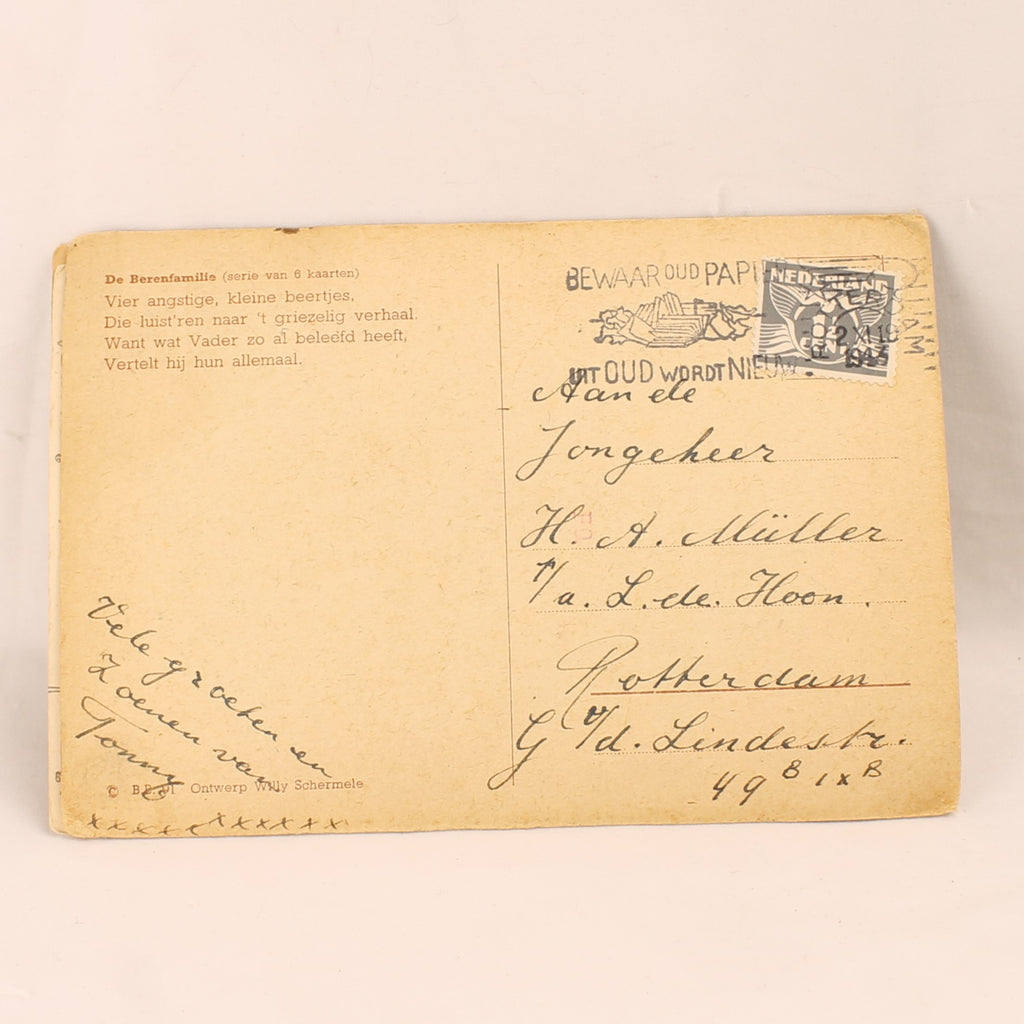 De Berenfamilie (serie van 6 kaarten)
Vier angstige, kleine beertjes,
Die luist'ren naar 't griezelig verhaal.
Want wat Vader zo al beleefd heeft,
Vertelt hij hun allemaal.
BEWAAR OUD PAPI
UIT OUD WORDT NIEUW
NEDERLAND
2 XI 18
1943
Aan de
Jongeheer
H. A. Müller
p/a. L. de. Hoon.
Rotterdam
G v/d. Lindestr.
49 B 1x B
Vele groeten en
Zoenen van
Tonny
© Ontwerp Willy Schermele
xxxxxxxxxxxxx